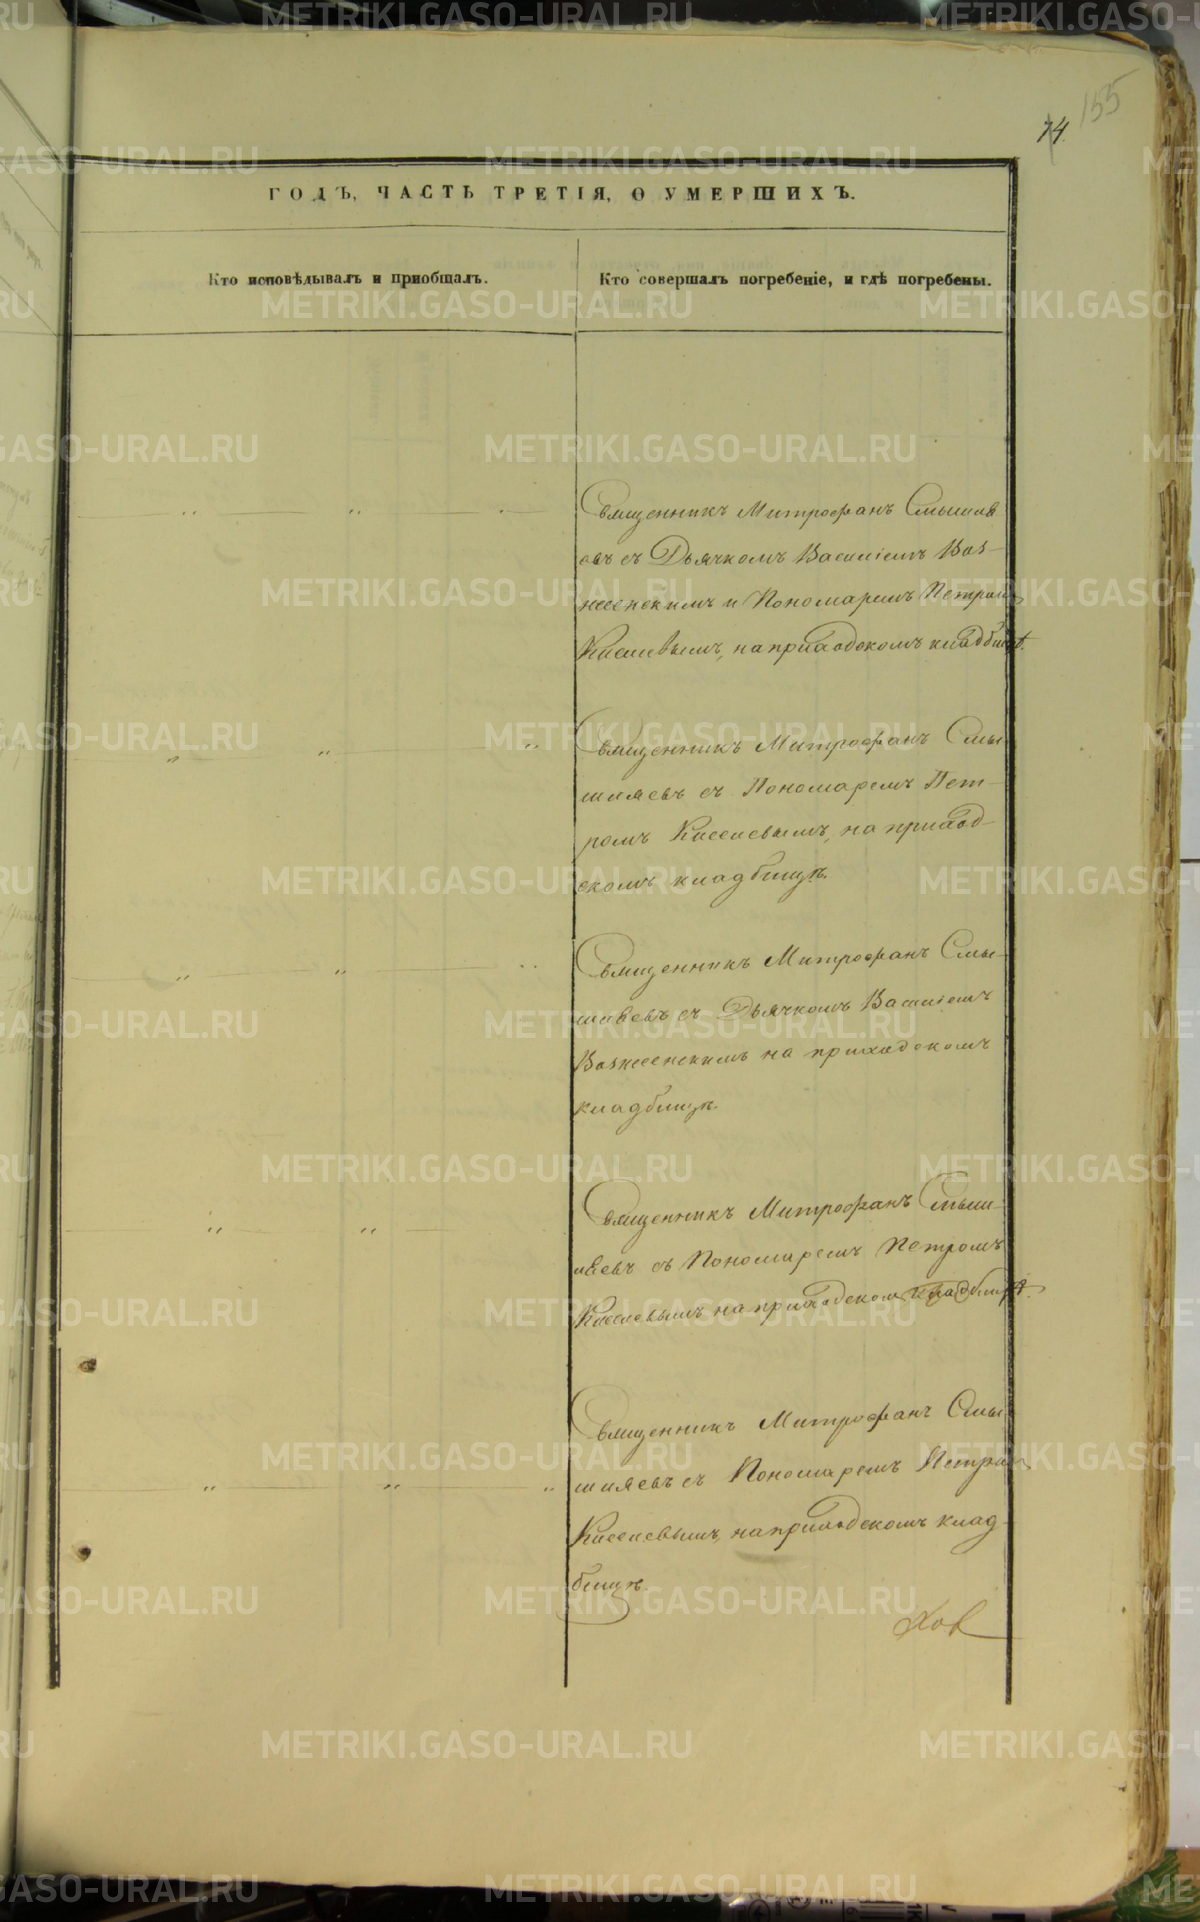 155
74.
ГОДЪ, ЧАСТЬ ТРЕТІЯ, О УМЕРШИХЪ.
Кто исповѣдывалъ и приобщалъ.
Кто совершалъ погребеніе, и гдѣ погребены.
Священникъ Митрофанъ Смышля
евъ съ Дьячкомъ Василіемъ Воз-
несенскимъ и Пономаремъ Петромъ
Киселевымъ, на приходскомъ кладбищѣ.
Священникъ Митрофанъ Смы-
шляевъ съ Пономаремъ Пет-
ромъ Киселевымъ, на приход-
скомъ кладбищѣ.
Священникъ Митрофанъ Смы-
шляевъ съ Дьячкомъ Василіемъ
Вознесенскимъ на приходскомъ
кладбищѣ.
Священникъ Митрофанъ Смыш-
ляевъ съ Пономаремъ Петромъ
Киселевымъ на приходском кладбищѣ.
Священникъ Митрофанъ Смы-
шляевъ съ Пономаремъ Петром
Киселевымъ, на приходскомъ клад-
бищѣ.
METRIKI.GASO-URAL.RU